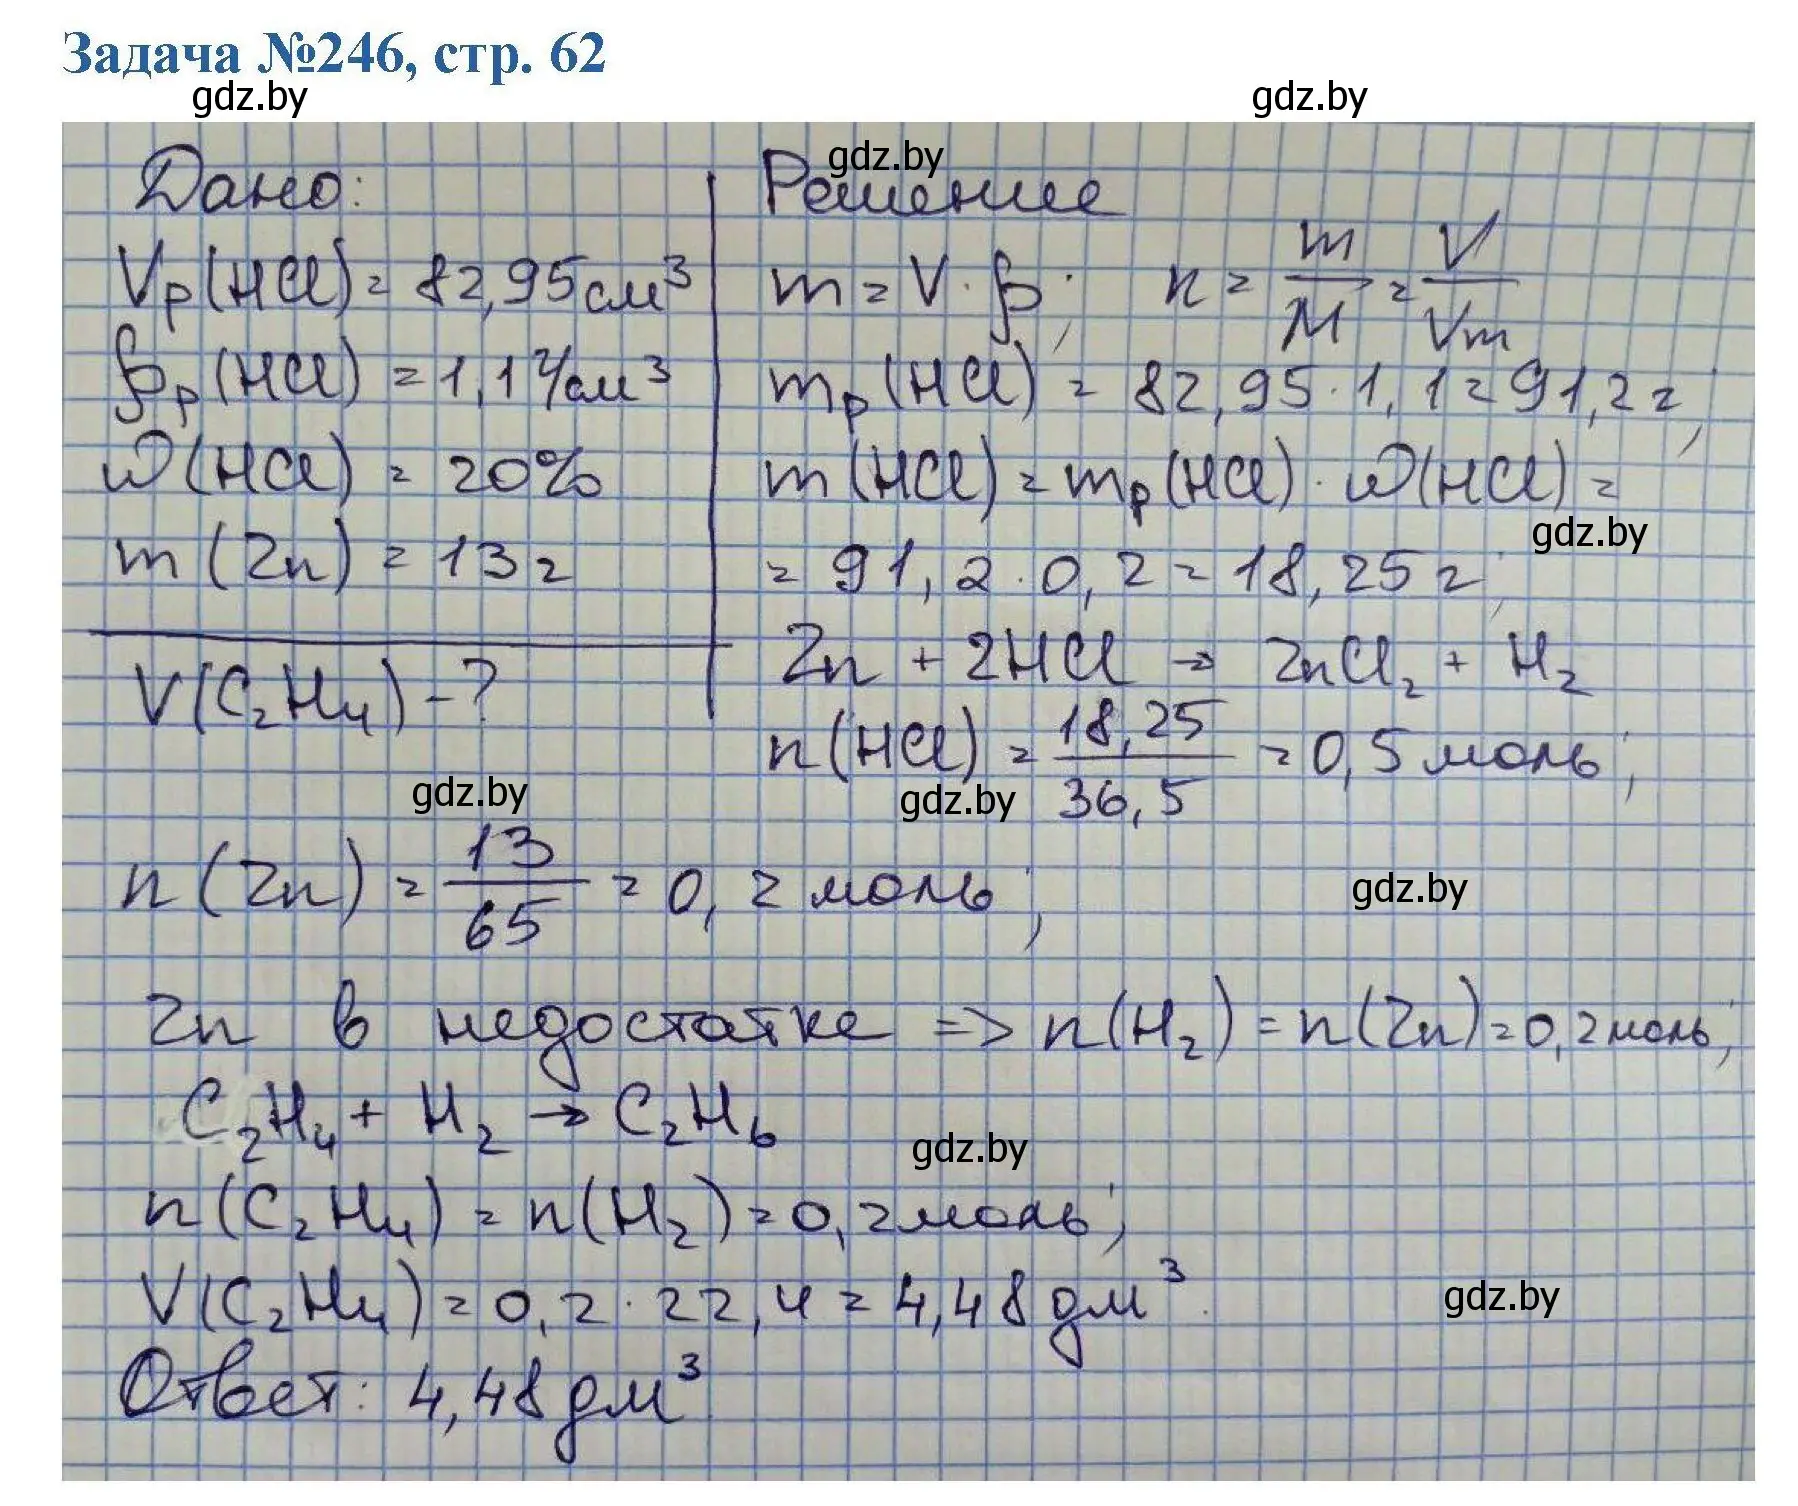 Задача №246, стр. 62
gdz.by
gdz.by
gdz.by
Дано:
Vр(HCl) = 82,95 см³
ρр(HCl) = 1,1 г/см³
ω(HCl) = 20%
m(Zn) = 13 г
V(C₂H₄) - ?
Решение
m = V · ρ; n = m/M = V/Vm
mр(HCl) = 82,95 · 1,1 = 91,2 г;
m(HCl) = mр(HCl) · ω(HCl) =
gdz.by
= 91,2 · 0,2 = 18,25 г;
Zn + 2HCl → ZnCl₂ + H₂
n(HCl) = 18,25/36,5 = 0,5 моль;
gdz.by
gdz.by
n(Zn) = 13/65 = 0,2 моль;
gdz.by
Zn в недостатке => n(H₂) = n(Zn) = 0,2 моль;
C₂H₄ + H₂ → C₂H₆
gdz.by
n(C₂H₄) = n(H₂) = 0,2 моль;
V(C₂H₄) = 0,2 · 22,4 = 4,48 дм³.
gdz.by
Ответ: 4,48 дм³